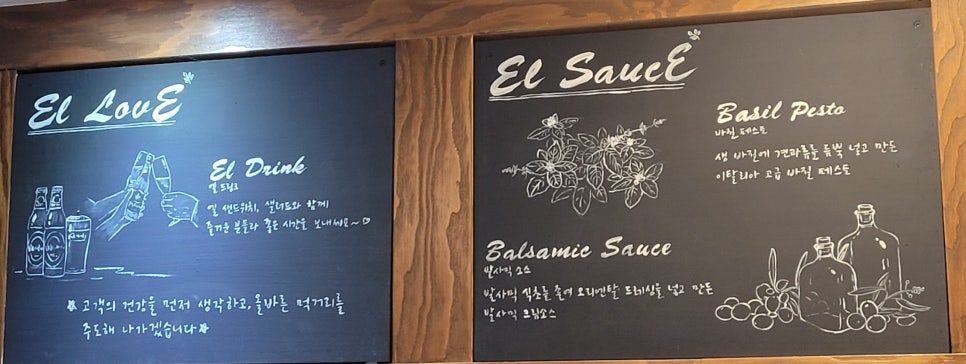 El LovE
El Drink
엘 드링크
엘 샌드위치, 샐러드와 함께
즐거운 분들과 좋은 시간을 보내세요~♡
고객의 건강을 먼저 생각하고, 올바른 먹거리를
주도해 나가겠습니다
El SaucE
Basil Pesto
바질 페스토
생 바질에 견과류를 듬뿍 넣고 만든
이탈리아 고급 바질 페스토
Balsamic Sauce
발사믹 소스
발사믹 식초를 졸여 오리엔탈 드레싱을 넣고 만든
발사믹 크림소스